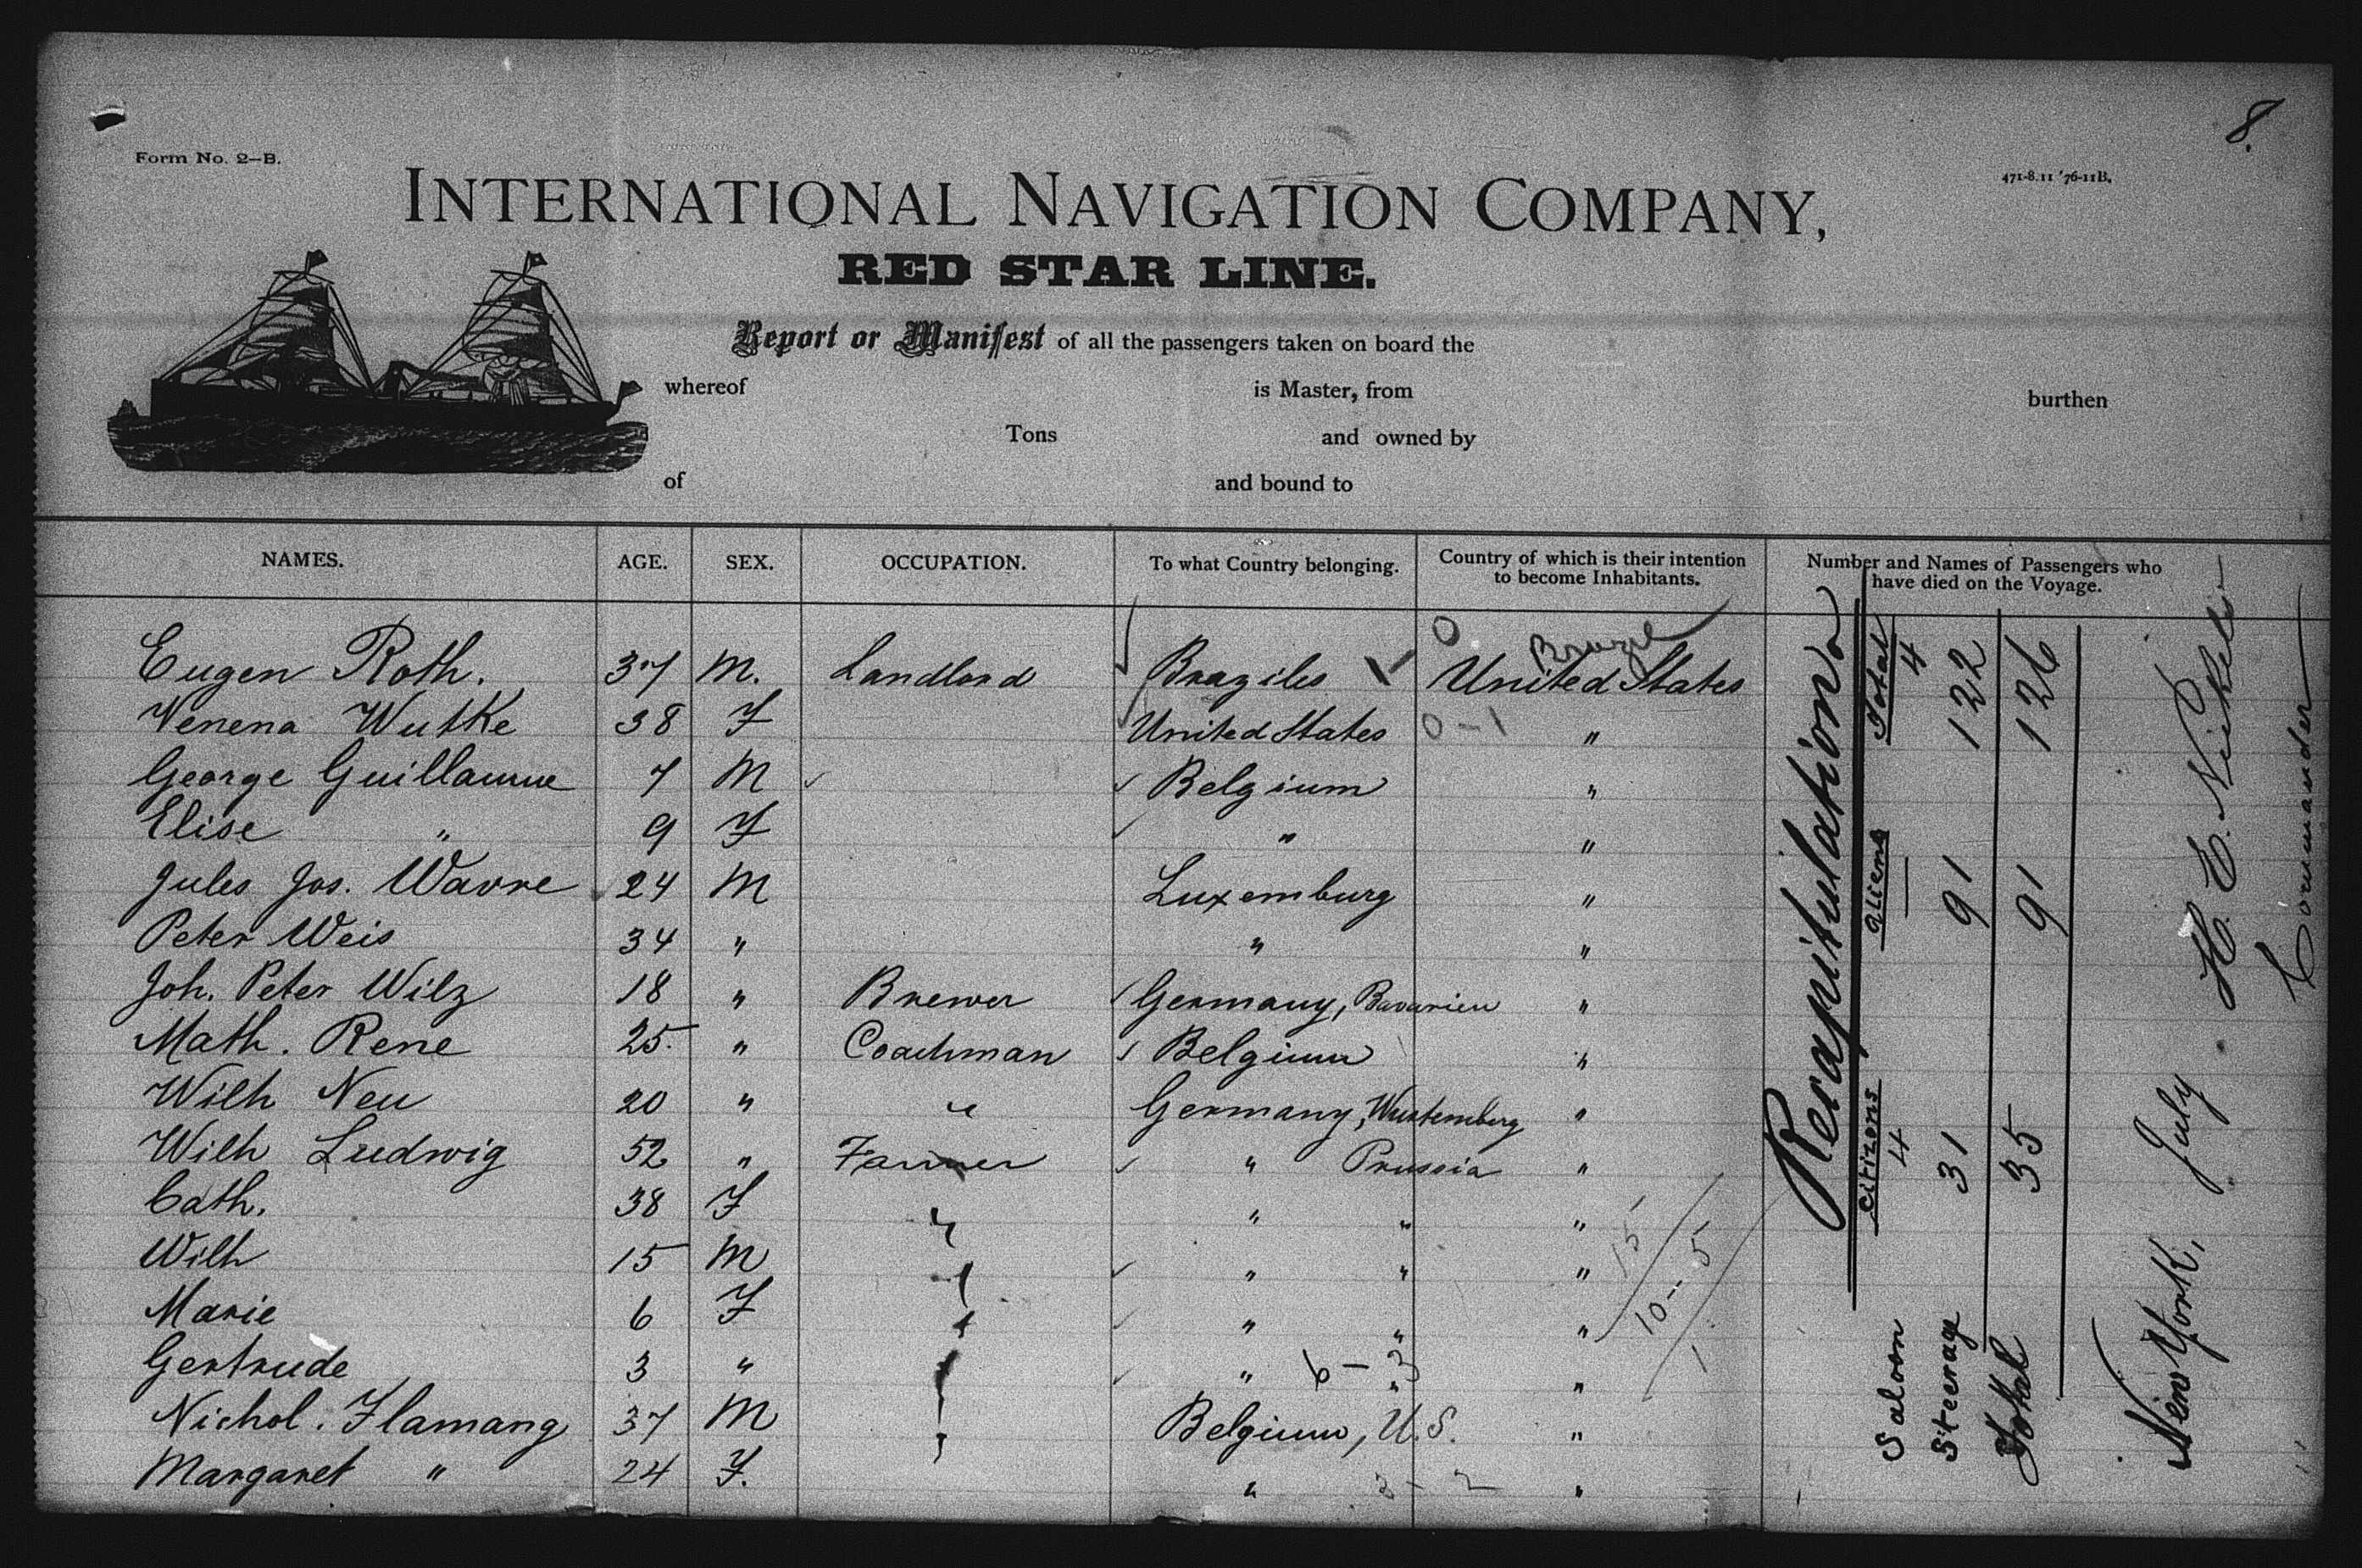 8.
Form No. 2—B.
471-8.11 '76-11B.
INTERNATIONAL NAVIGATION COMPANY,
RED STAR LINE.
Report or Manifest of all the passengers taken on board the
whereof is Master, from burthen
Tons and owned by
of and bound to
NAMES. AGE. SEX. OCCUPATION. To what Country belonging. Country of which is their intention to become Inhabitants. Number and Names of Passengers who have died on the Voyage.
0 Brazil
Eugen Roth. 37 M. Landlord Braziles United States
Venena Wutke 38 F United States 0-1 "
George Guillaume 7 M Belgium "
Elise " 9 F " "
Jules Jos. Wavre 24 M Luxemburg "
Peter Weis 34 " " "
Joh. Peter Wilz 18 " Brewer Germany, Bavarien "
Math. Rene 25. " Coachman Belgium "
Wilh Neu 20 " " Germany, Wurtemberg "
Wilh Ludwig 52 " Farmer " Prussia "
Cath. 38 F " " " "
Wilh 15 M " " " "
Marie 6 F " " " "
Gertrude 3 " " " 6-3 " "
Nichol. Flamang 37 M Belgium, U.S. "
Margaret " 24 F. " 3-2 "
15
10-5
1
Recapitulation
Citizens Aliens Total
Saloon 4 — 4
Steerage 31 91 122
Total 35 91 126
New York, July
H. E. Nickels
Commander